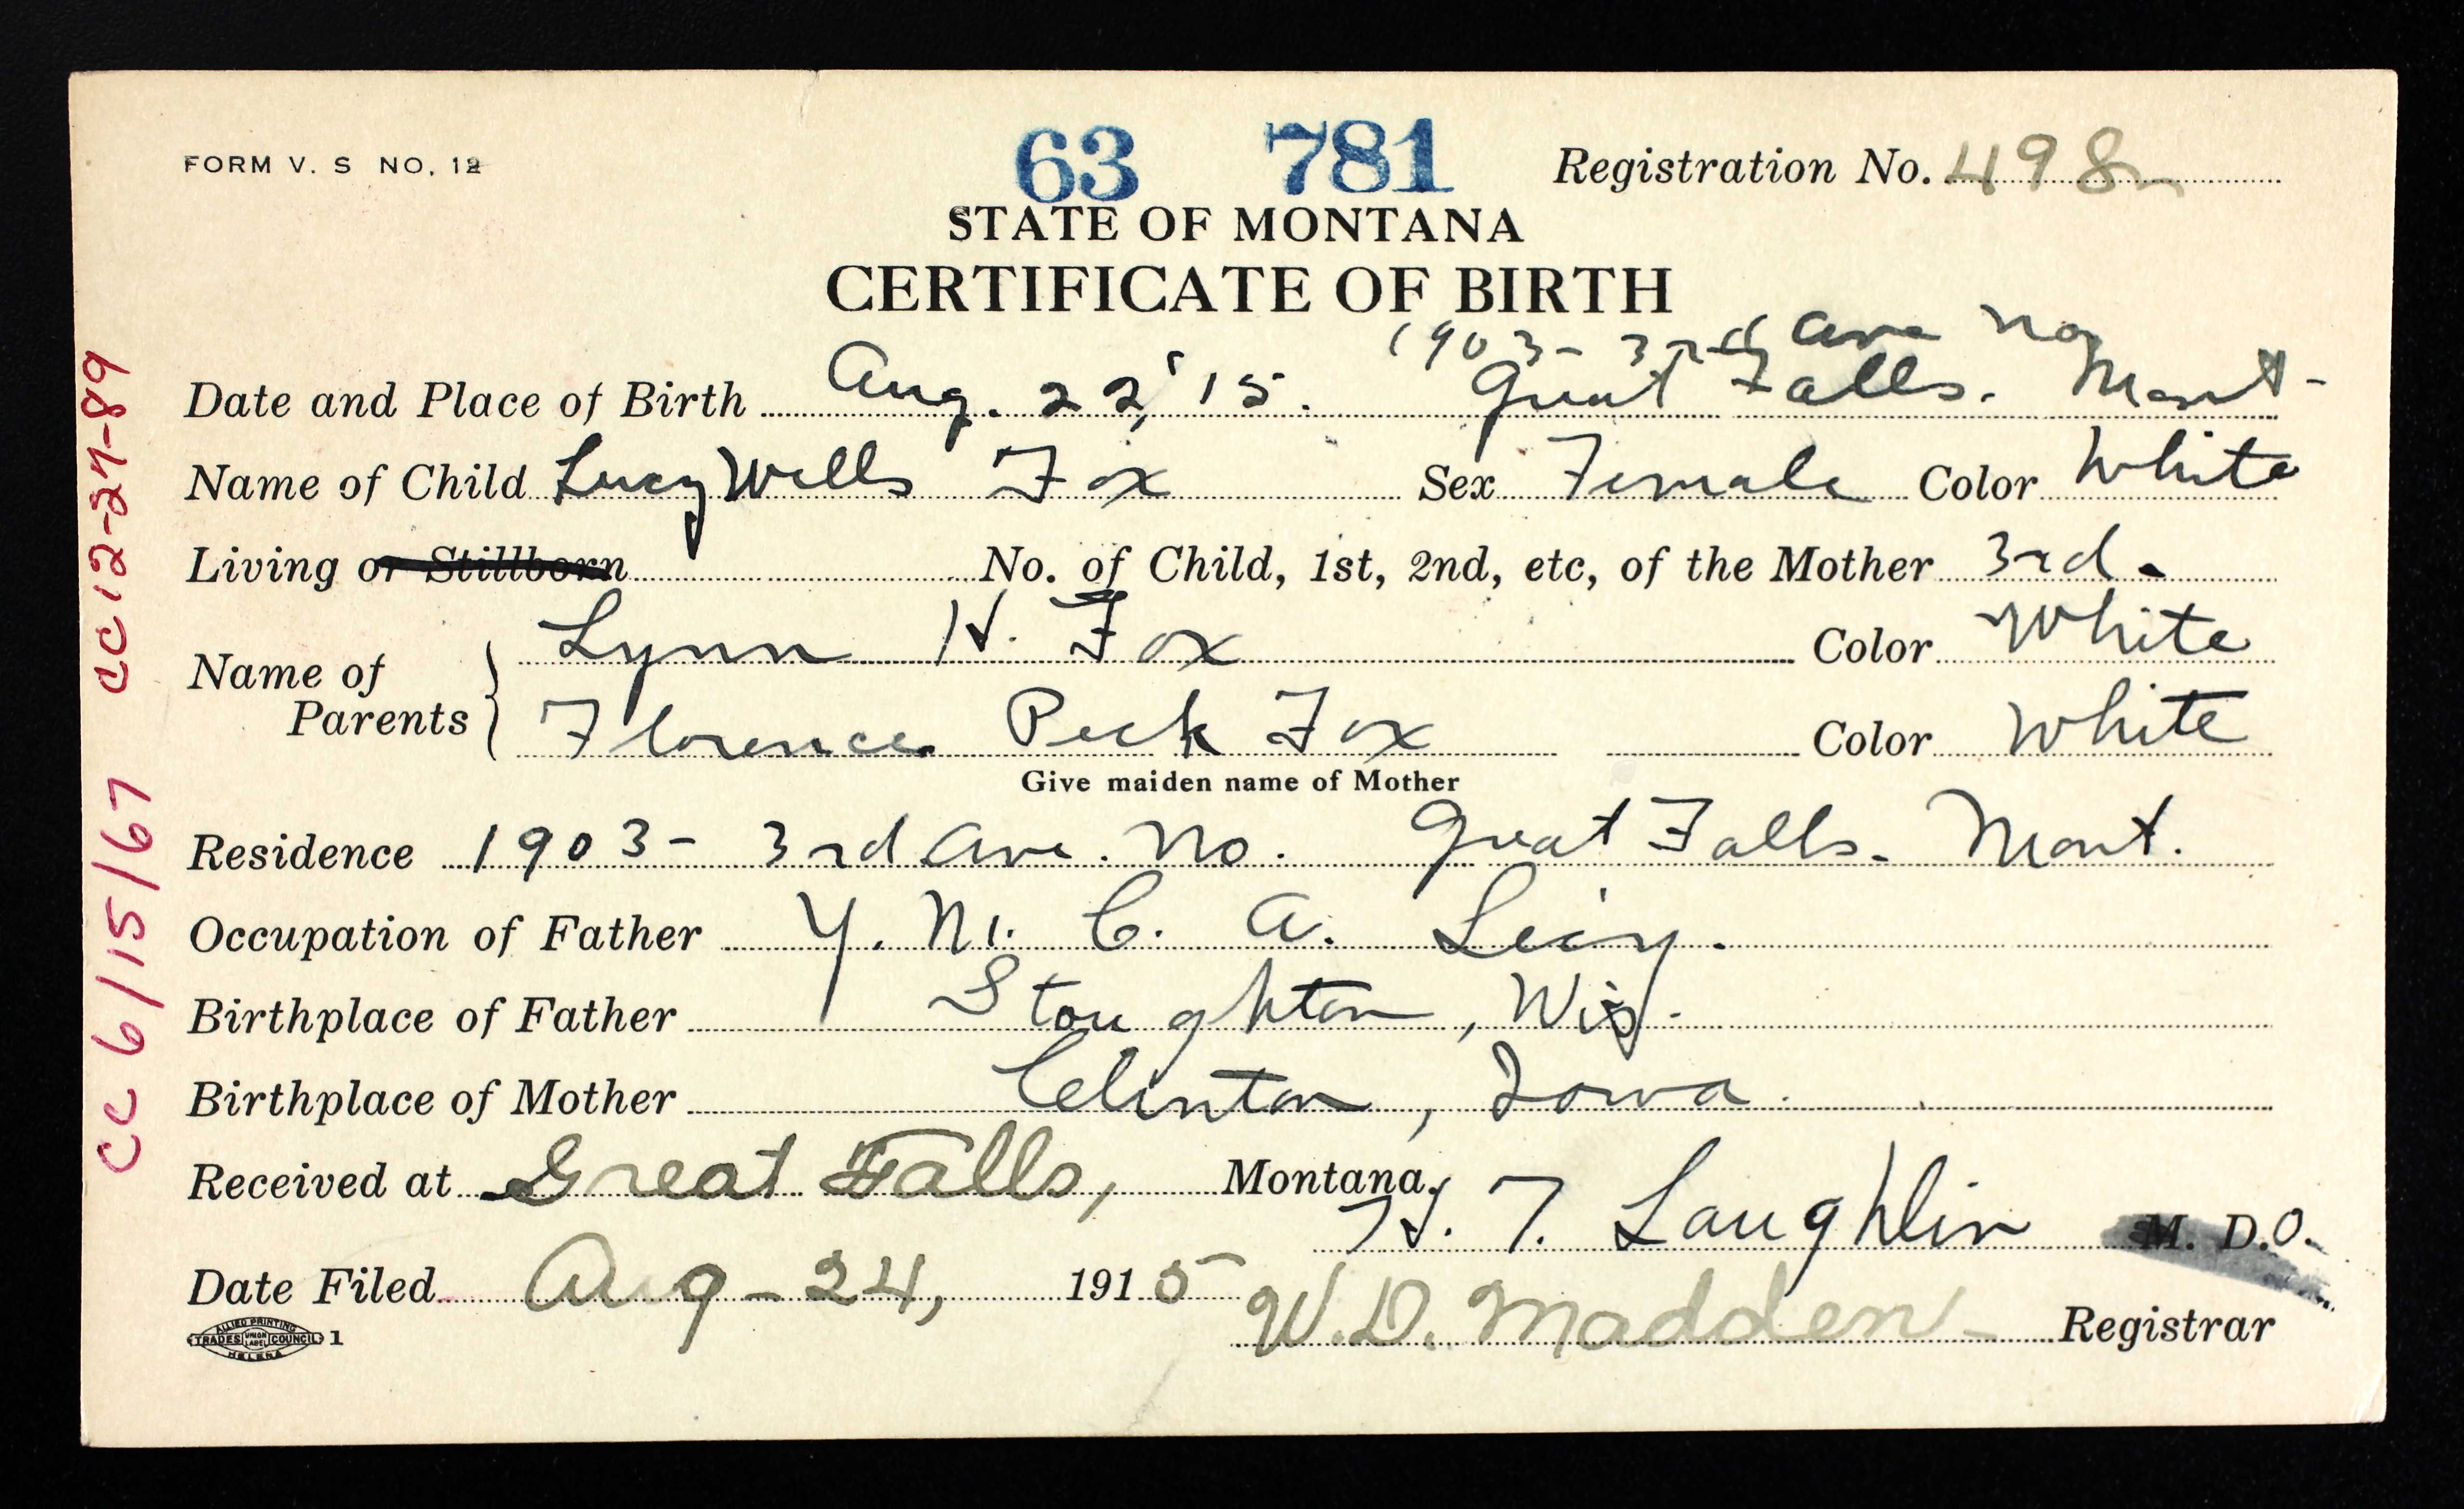 63 781
FORM V. S NO. 12
Registration No. 498
STATE OF MONTANA
CERTIFICATE OF BIRTH
1903- 3rd Ave No
Date and Place of Birth Aug. 22, '15. Great Falls. Mont-
Name of Child Lucy Wells Fox Sex Female Color White
Living or Stillborn No. of Child, 1st, 2nd, etc, of the Mother 3rd.
Name of Parents Lynn H. Fox Color White
Florence Peck Fox Color White
Give maiden name of Mother
Residence 1903- 3rd Ave. No. Great Falls. Mont.
Occupation of Father Y. M. C. A. Secy.
Birthplace of Father Stoughton, Wis.
Birthplace of Mother Clinton, Iowa.
Received at Great Falls, Montana.
H. T. Laughlin M. D.O.
Date Filed Aug-24, 1915
W. D. Madden- Registrar
ALLIED PRINTING
TRADES UNION LABEL COUNCIL 1
HELENA
CC 6/15/67 CC 12-27-89